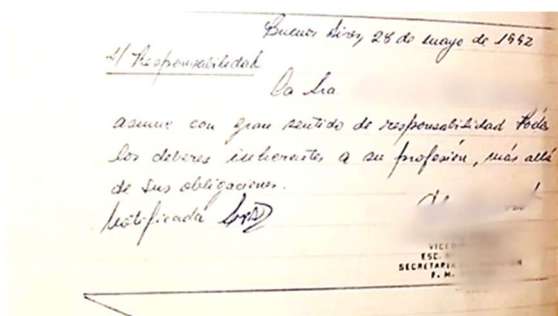 Buenos Aires, 28 de mayo de 1992
s/ Responsabilidad
La Sra.
asume con gran sentido de responsabilidad todos
los deberes inherentes a su profesión, más allá
de sus obligaciones.
Notificada
ESC.